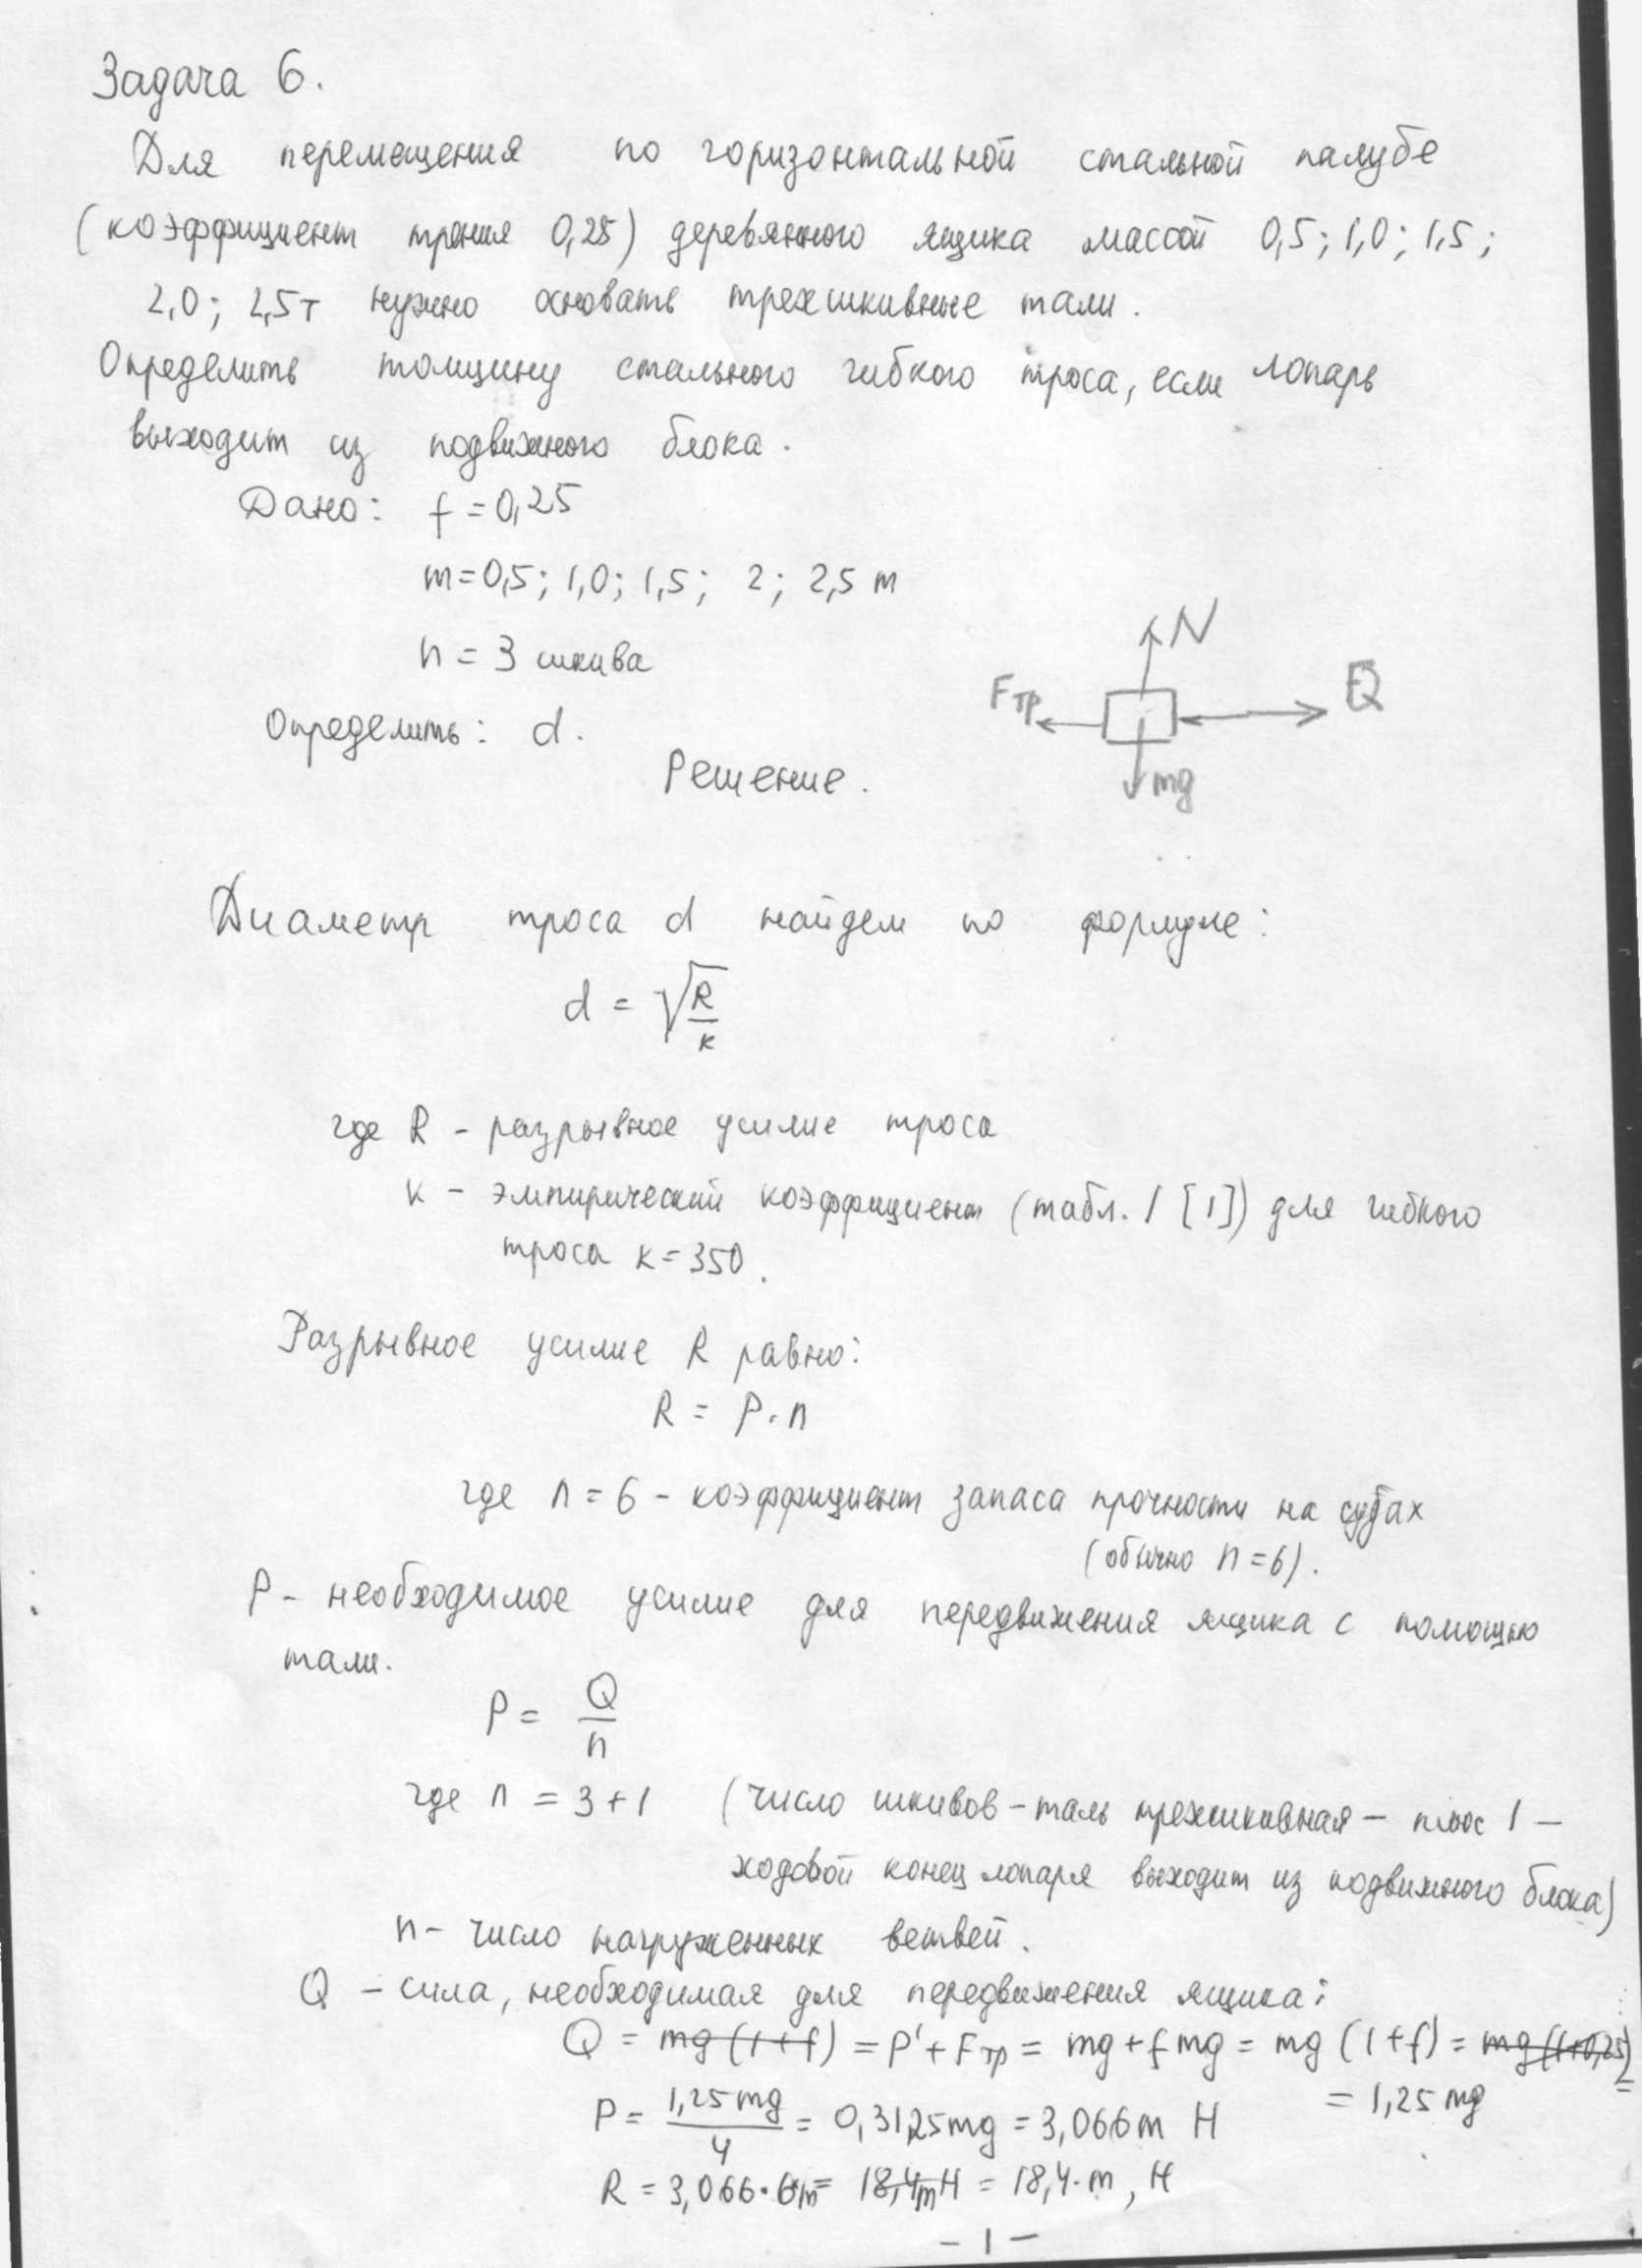 Задача 6.
Для перемещения по горизонтальной стальной палубе
(коэффициент трения 0,25) деревянного ящика массой 0,5; 1,0; 1,5;
2,0; 2,5т нужно основать трехшкивные тали.
Определить толщину стального гибкого троса, если лопарь
выходит из подвижного блока.
Дано: f = 0,25
m = 0,5; 1,0; 1,5; 2; 2,5 т
n = 3 шкива
Определить: d.
N
Fтр
Q
mg
Решение.
Диаметр троса d найдем по формуле:
d = √(R/к)
где R - разрывное усилие троса
к - эмпирический коэффициент (табл. 1 [1]) для гибкого
троса к = 350.
Разрывное усилие R равно:
R = P · n
где n = 6 - коэффициент запаса прочности на судах
(обычно n = 6).
P - необходимое усилие для передвижения ящика с помощью
тали.
P = Q/n
где n = 3 + 1 (число шкивов - таль трехшкивная - плюс 1 -
ходовой конец лопаря выходит из подвижного блока)
n - число нагруженных ветвей.
Q - сила, необходимая для передвижения ящика:
Q = mg (1 + f) = P' + Fтр = mg + fmg = mg (1 + f) = mg (1+0,25) =
= 1,25 mg
P = 1,25 mg/4 = 0,3125 mg = 3,066 m Н
R = 3,066 · 6m = 18,4m Н = 18,4 · m, Н
- 1 -